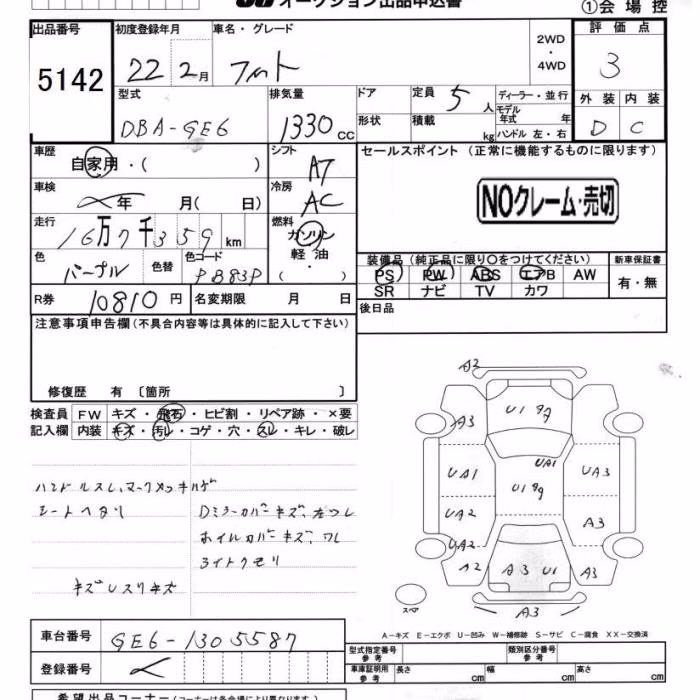 オークション出品申込書
①会場控
出品番号 初度登録年月 車名・グレード 2WD・4WD 評価点
5142 22 2月 フィット 3
型式 排気量 ドア 定員 5人 ディーラー・並行 外装 内装
DBA-GE6 1330cc 形状 積載 kg モデル年式 年 D C
ハンドル 左・右
車歴 自家用・( ) シフト AT セールスポイント (正常に機能するものに限ります)
車検 年 月( 日) 冷房 AC NOクレーム・売切
走行 16万7千359km 燃料 ガソリン
軽油・( )
色 パープル 色替 色コード PB83P
装備品 (純正品に限り○をつけてください) 新車保証書
PS PW ABS エアB AW 有・無
SR ナビ TV カワ
R券 10810円 名変期限 月 日 後日品
注意事項申告欄(不具合内容等は具体的に記入して下さい)
修復歴 有 〔箇所 〕
検査員 FW キズ・飛石・ヒビ割・リペア跡・×要
記入欄 内装 キズ・汚レ・コゲ・穴・スレ・キレ・破レ
ハンドルスレ、マークメッキハゲ
シートヘタリ Dミラーカバーキズ、
ホイルカバーキズ、ワレ
ライトクモリ
キズ
A2
A3 U1
UA1 UA1 UA3
U1
UA2 A3
UA2
A2 A3 U1 A3
スペア A3
A-キズ E-エクボ U-凹み W-補修跡 S-サビ C-腐食 XX-交換済
車台番号 GE6-1305587
登録番号
型式指定番号 参考 類別区分番号 参考
車庫証明用 参考 長さ cm 幅 cm 高さ cm
希望出品コーナー(コーナーは各会場により異なります)